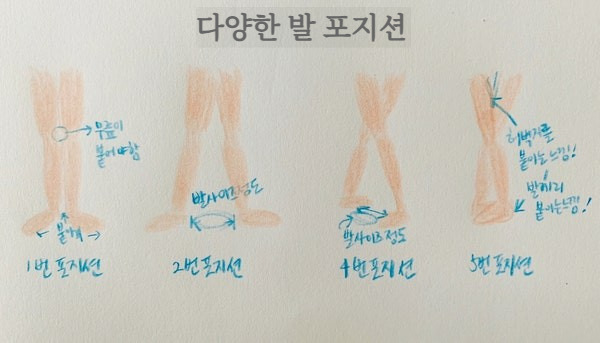 다양한 발 포지션
무릎이
붙어야함
붙이기
1번 포지션
발사이즈정도
2번 포지션
발사이즈 정도
4번 포지션
허벅지를
붙이는 느낌!
발끼리
붙이는느낌!
5번 포지션